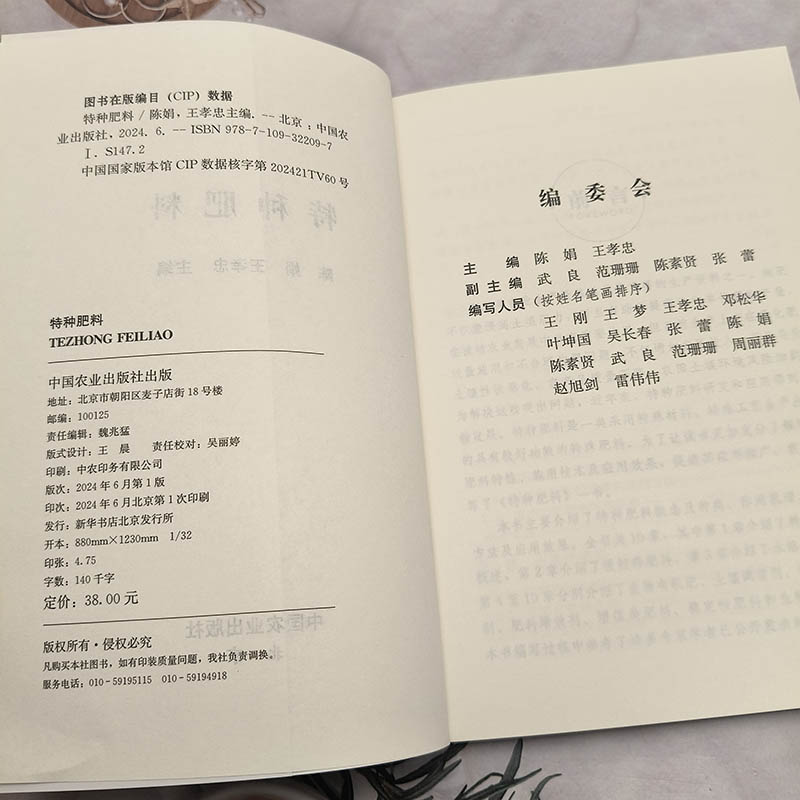 图书在版编目(CIP)数据
特种肥料 / 陈娟，王孝忠主编. -- 北京：中国农
业出版社，2024. 6. -- ISBN 978-7-109-32209-7
Ⅰ. S147.2
中国国家版本馆 CIP 数据核字第 202421TV60 号
特种肥料
TEZHONG FEILIAO
中国农业出版社出版
地址：北京市朝阳区麦子店街 18 号楼
邮编：100125
责任编辑：魏兆猛
版式设计：王 晨 责任校对：吴丽婷
印刷：中农印务有限公司
版次：2024 年 6 月第 1 版
印次：2024 年 6 月北京第 1 次印刷
发行：新华书店北京发行所
开本：880mm×1230mm 1/32
印张：4.75
字数：140 千字
定价：38.00 元
版权所有·侵权必究
凡购买本社图书，如有印装质量问题，我社负责调换。
服务电话：010-59195115 010-59194918
编委会
主 编 陈 娟 王孝忠
副主编 武 良 范珊珊 陈素贤 张 蕾
编写人员（按姓名笔画排序）
王 刚 王 梦 王孝忠 邓松华
叶坤国 吴长春 张 蕾 陈 娟
陈素贤 武 良 范珊珊 周丽群
赵旭剑 雷伟伟